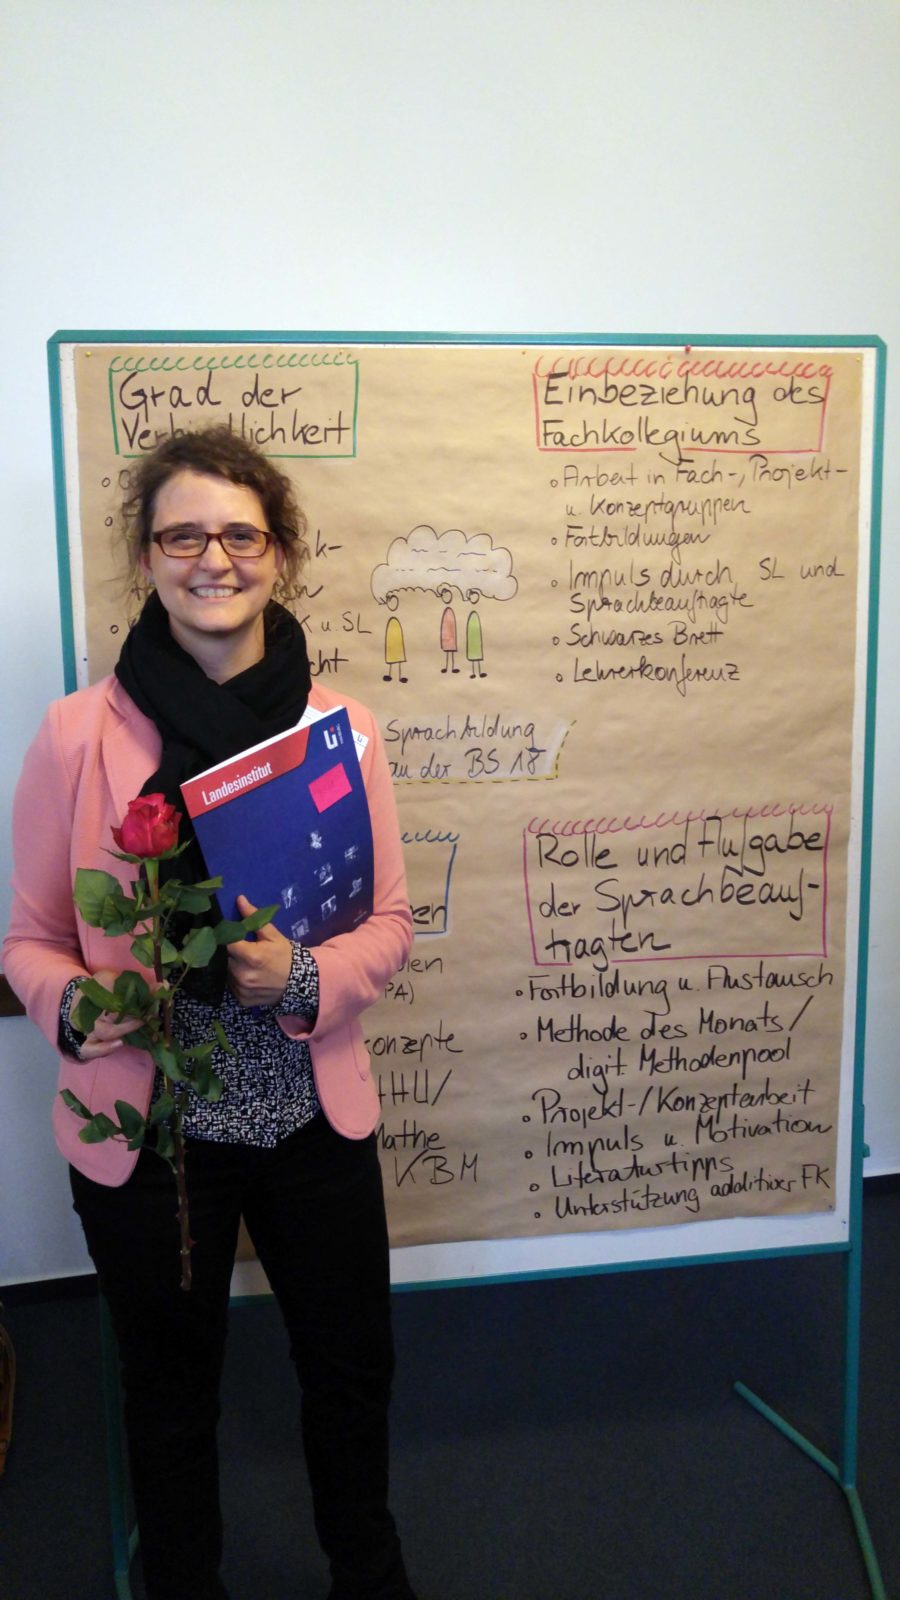 Grad der
Verbindlichkeit
K u. SL
Einbeziehung des
Fachkollegiums
• Arbeit in Fach-, Projekt-
u. Konzeptgruppen
• Fortbildungen
• Impuls durch SL und
Sprachbeauftragte
• Schwarzes Brett
• Lehrerkonferenz
Sprachbildung
an der BS 18
Landesinstitut
PA)
HU/
Mathe
KBM
Rolle und Aufgabe
der Sprachbeauf-
tragten
• Fortbildung u. Austausch
• Methode des Monats/
digit. Methodenpool
• Projekt-/Konzeptarbeit
• Impuls u. Motivation
• Literaturtipps
• Unterstützung additiver FK